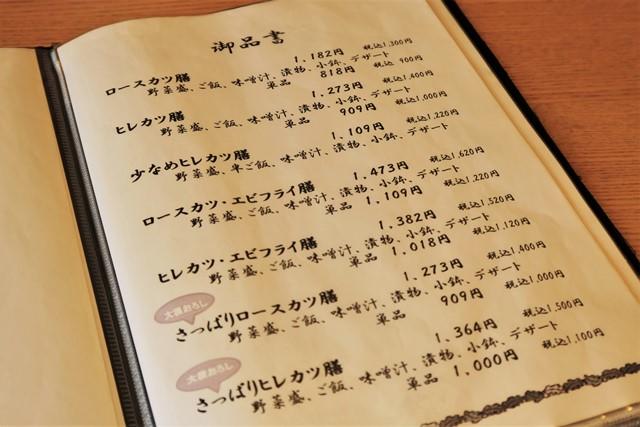 御品書
ロースカツ膳 1,182円 税込1,300円
野菜盛、ご飯、味噌汁、漬物、小鉢、デザート
単品 818円 税込 900円
ヒレカツ膳 1,273円 税込1,400円
野菜盛、ご飯、味噌汁、漬物、小鉢、デザート
単品 909円 税込1,000円
少なめヒレカツ膳 1,109円 税込1,220円
野菜盛、半ご飯、味噌汁、漬物、小鉢、デザート
ロースカツ・エビフライ膳 1,473円 税込1,620円
野菜盛、ご飯、味噌汁、漬物、小鉢、デザート
単品 1,109円 税込1,220円
ヒレカツ・エビフライ膳 1,382円 税込1,520円
野菜盛、ご飯、味噌汁、漬物、小鉢、デザート
単品 1,018円 税込1,120円
大根おろし
さっぱりロースカツ膳 1,273円 税込1,400円
野菜盛、ご飯、味噌汁、漬物、小鉢、デザート
単品 909円 税込1,000円
大根おろし
さっぱりヒレカツ膳 1,364円 税込1,500円
野菜盛、ご飯、味噌汁、漬物、小鉢、デザート
単品 1,000円 税込1,100円